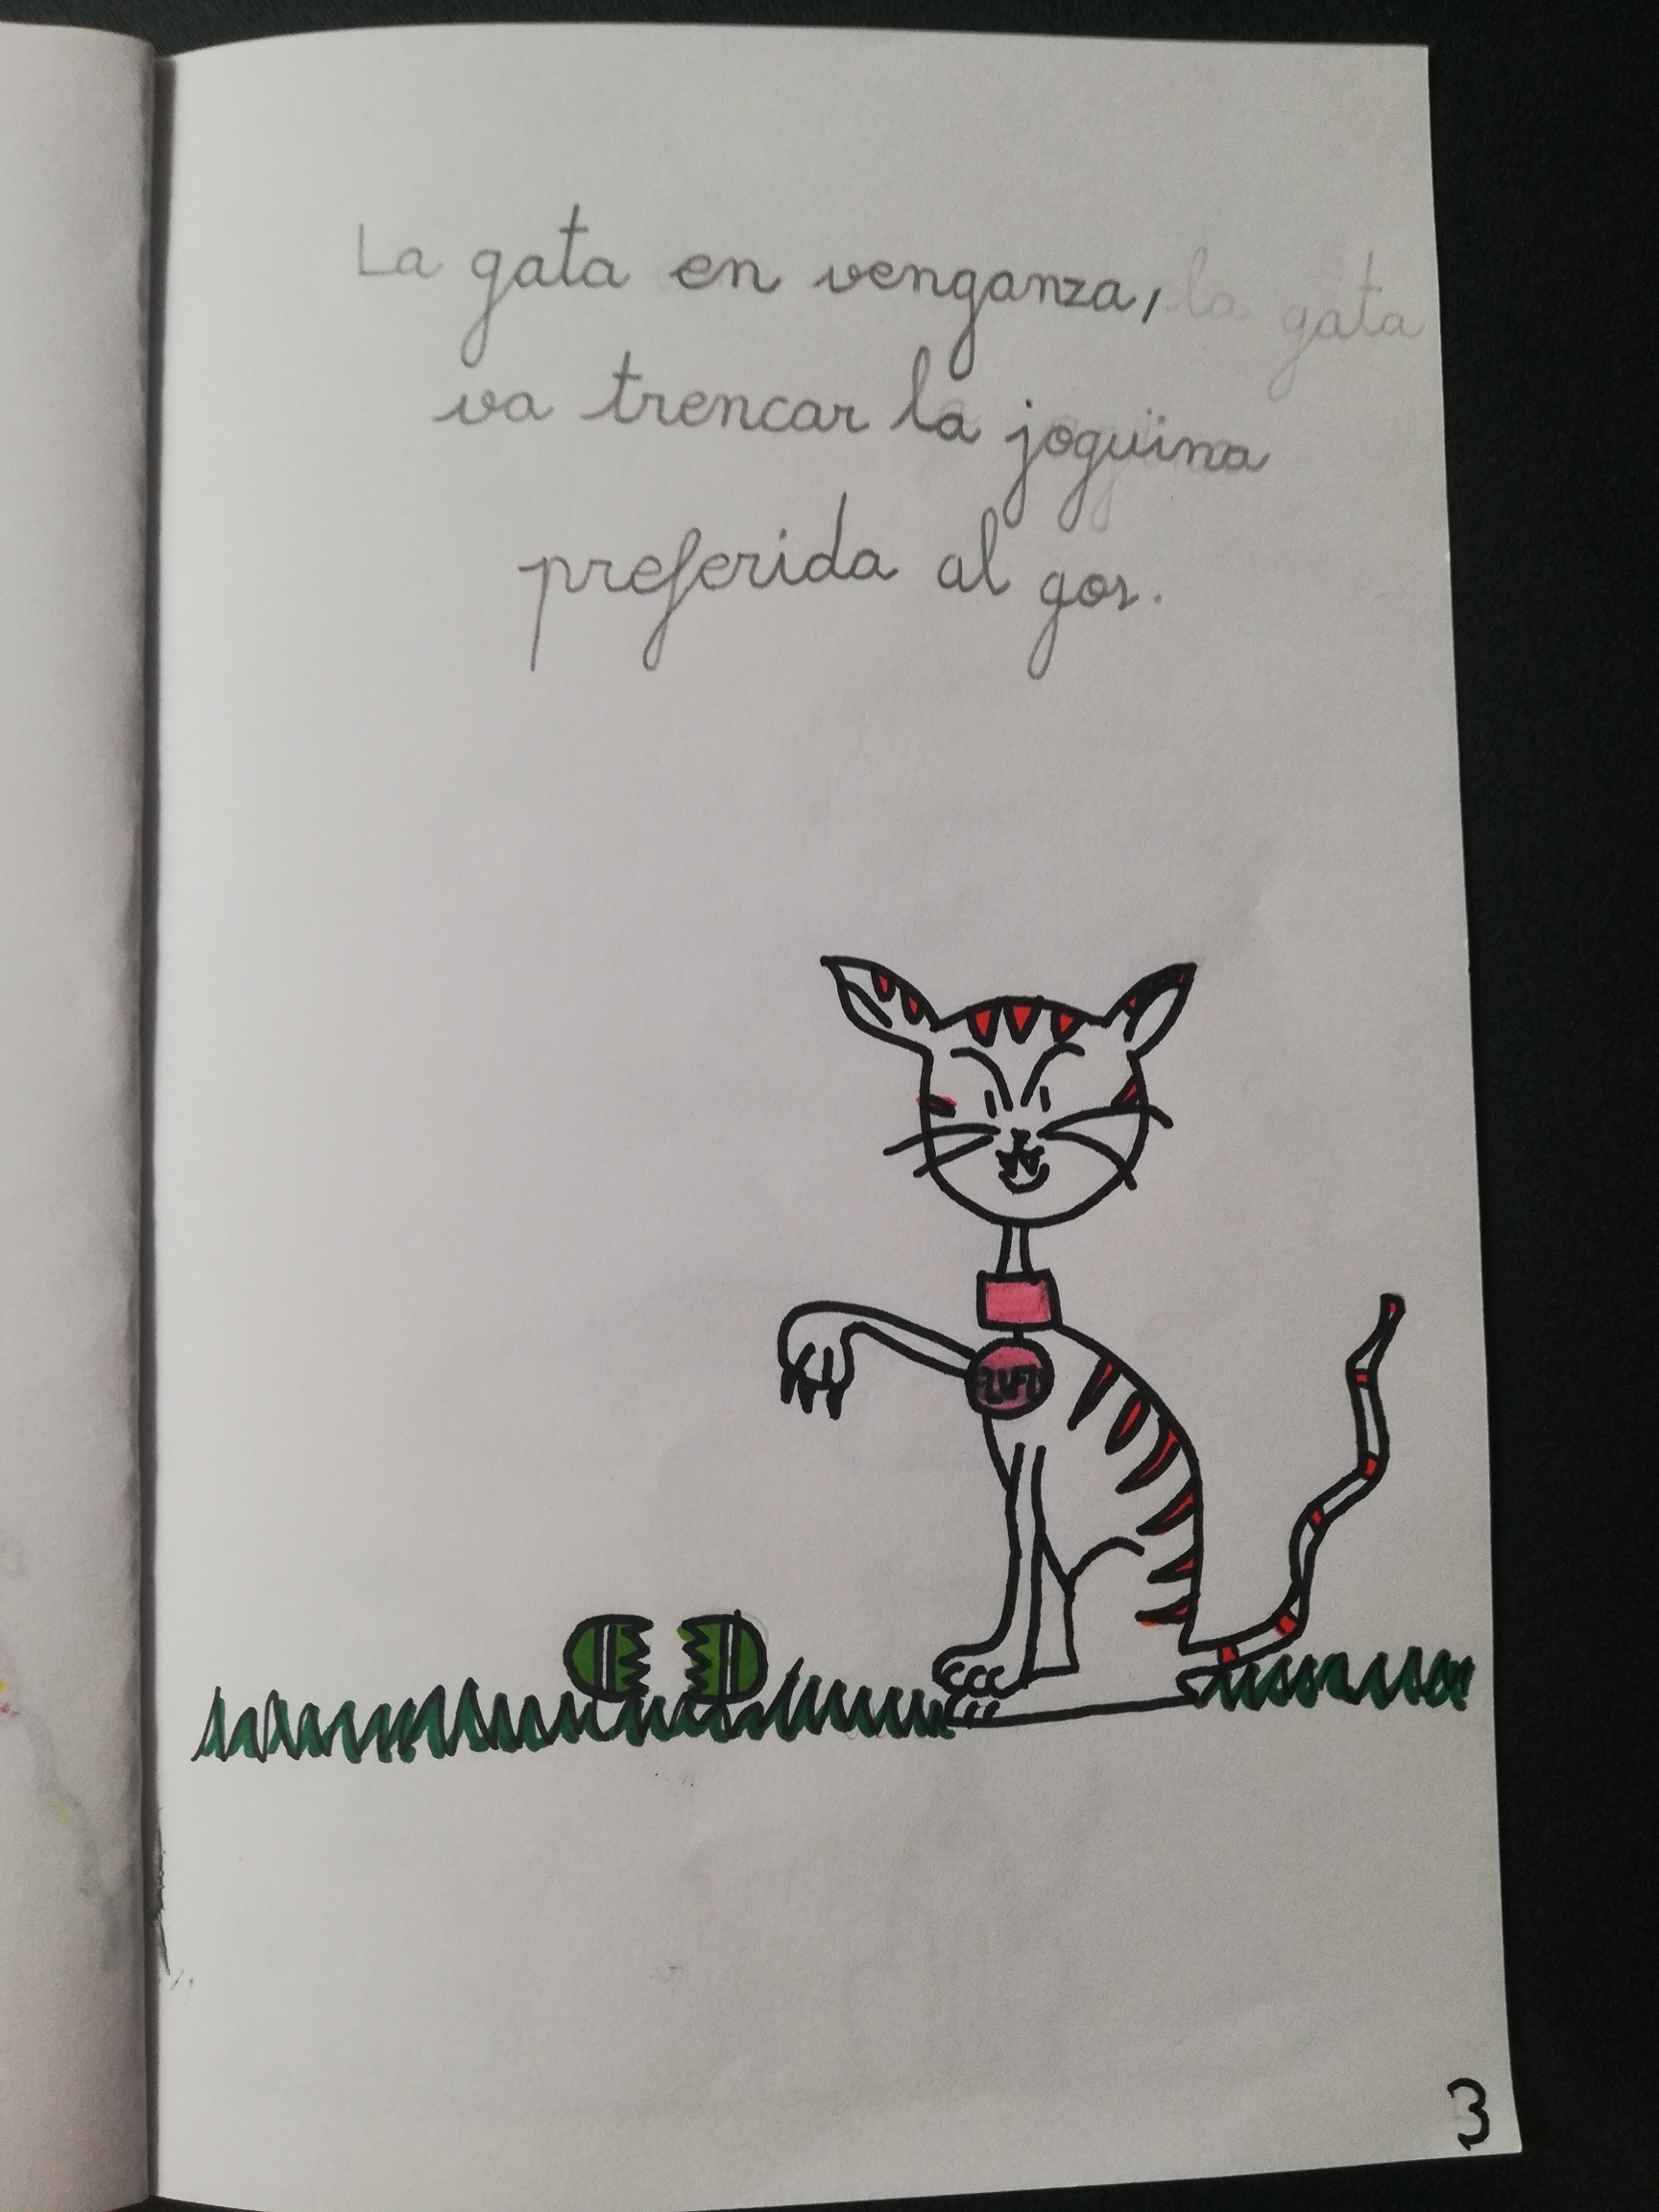 La gata en venganza, la gata
va trencar la joguïna
preferida al gos.
3